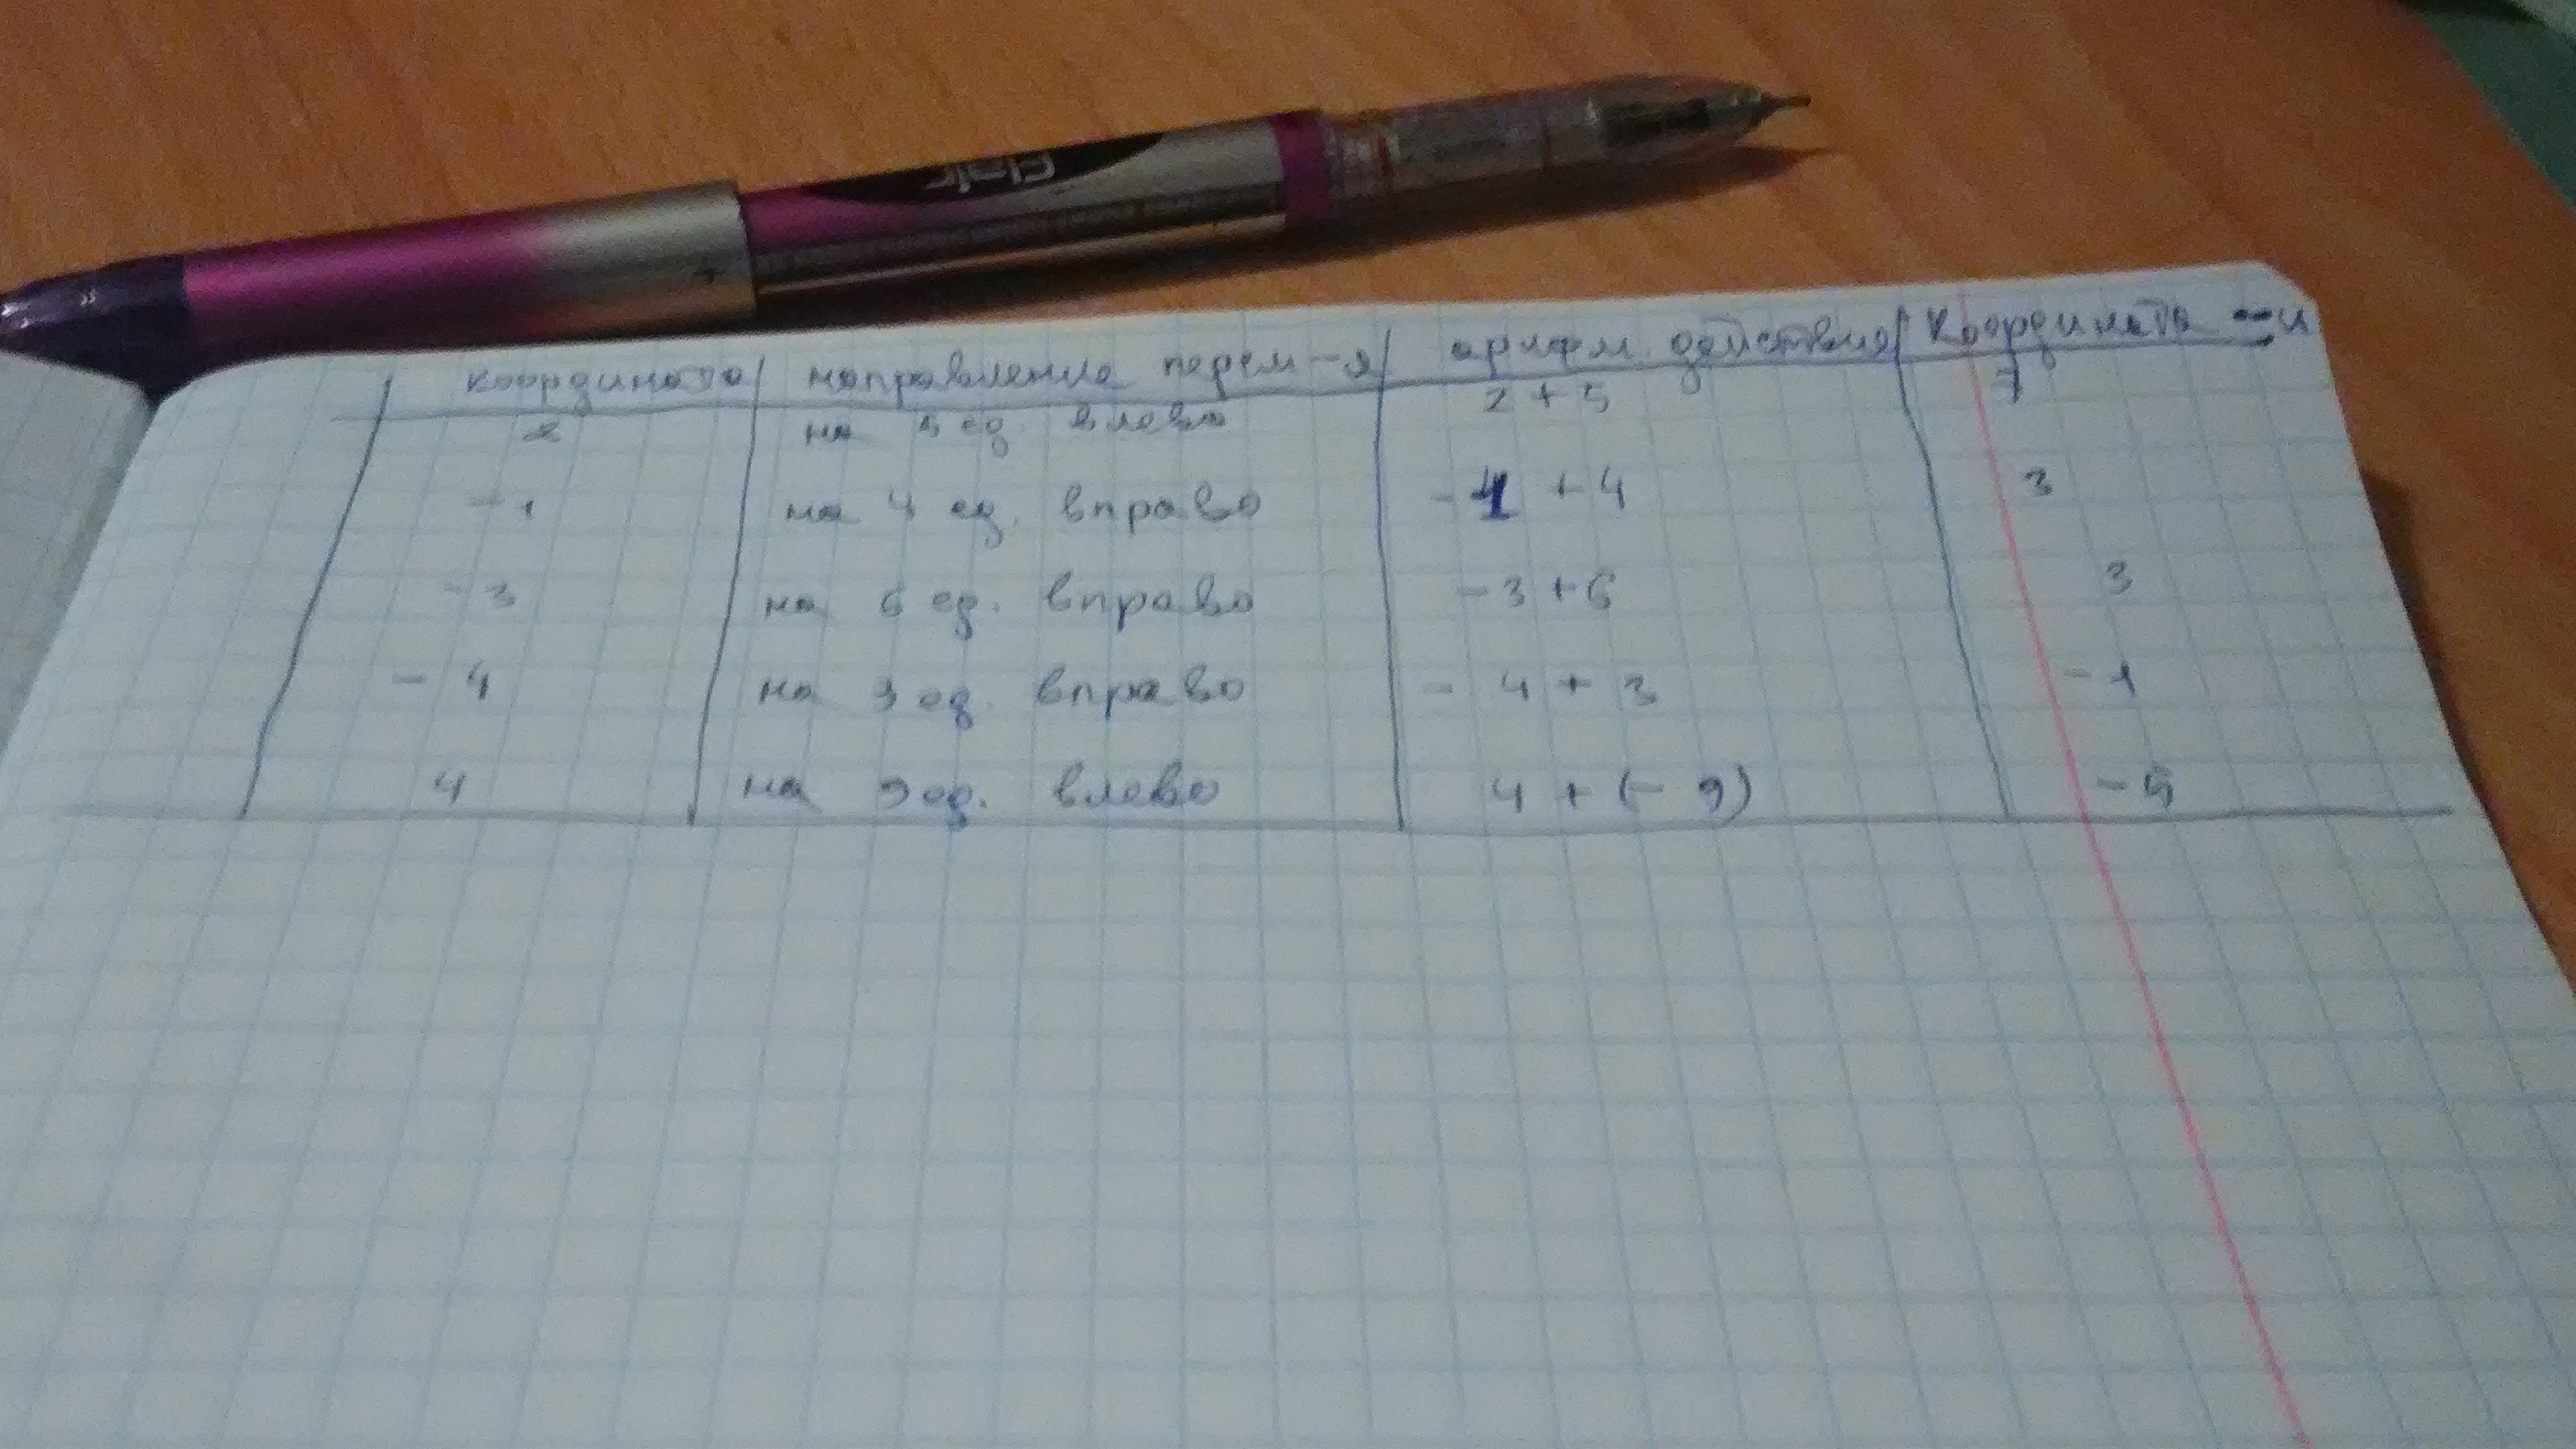 Flair
координата направление перем-я арифм. действия координата
2 на 5 ед. влево 2 + 5 7
- 1 на 4 ед. вправо - 1 + 4 3
- 3 на 6 ед. вправо - 3 + 6 3
- 4 на 3 ед. вправо - 4 + 3 - 1
4 на 9 ед. влево 4 + (- 9) - 5